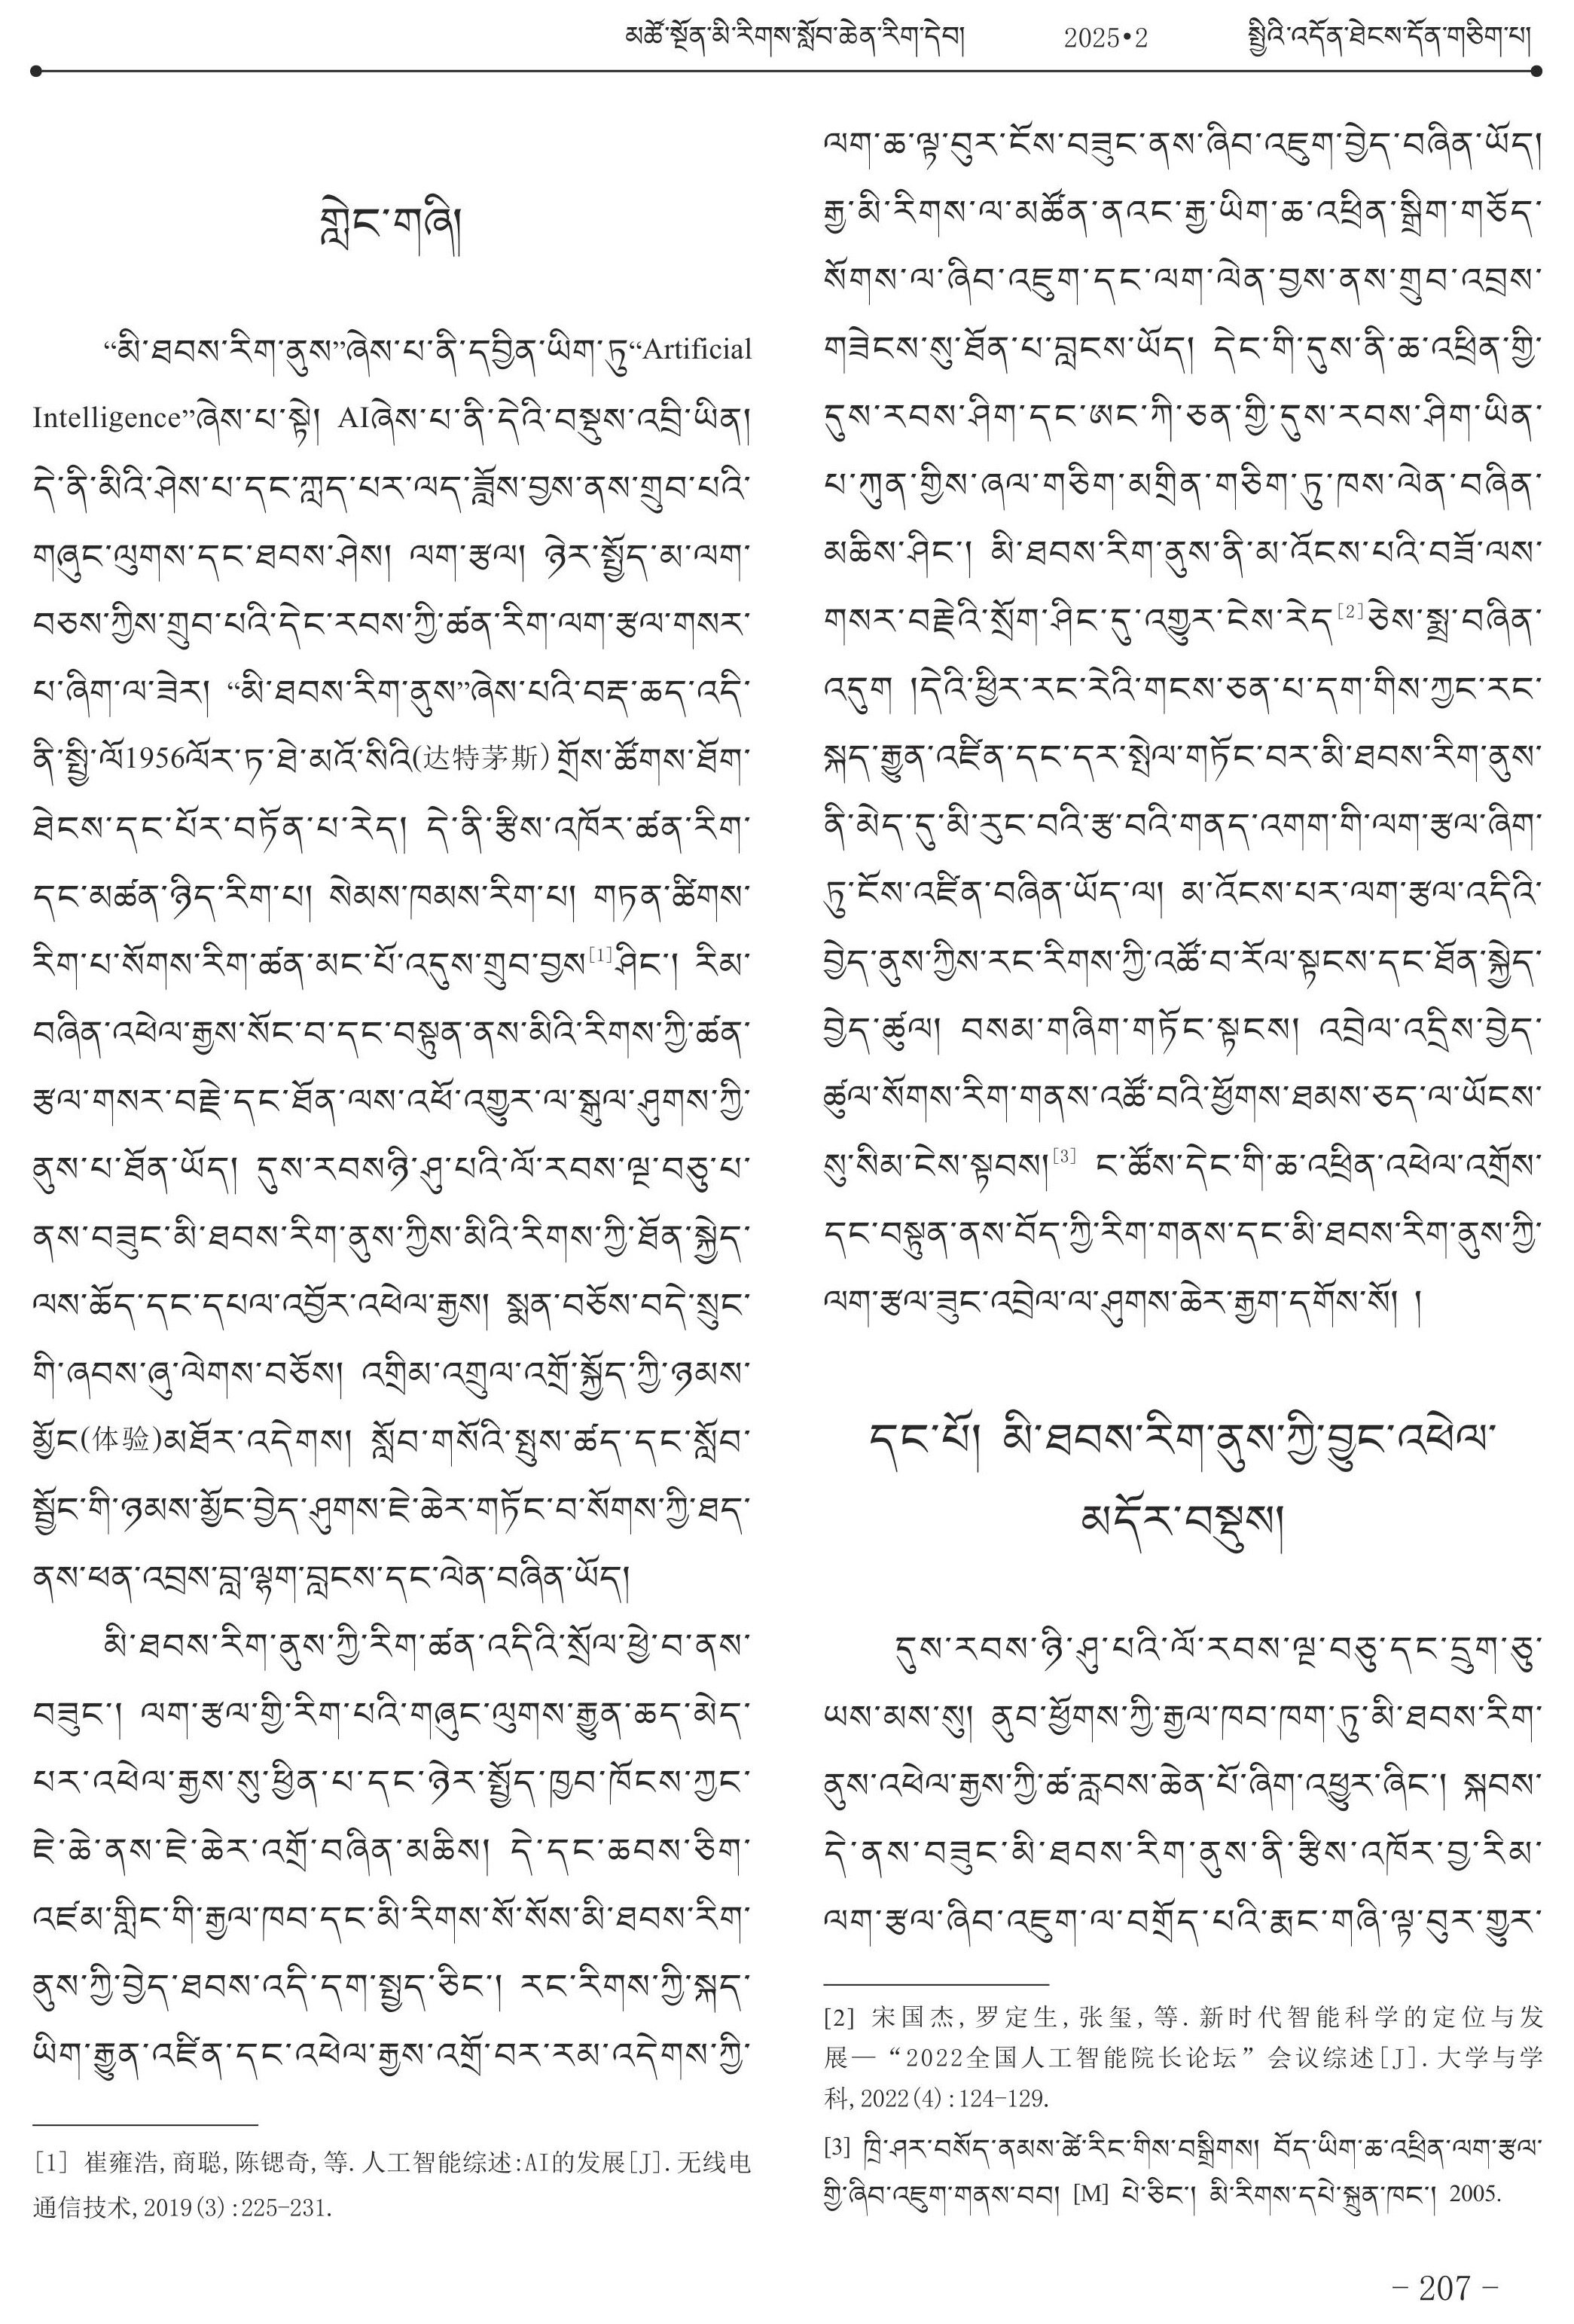 མཚོ་སྔོན་མི་རིགས་སློབ་ཆེན་རིག་དེབ། 2025•2 སྤྱིའི་འདོན་ཐེངས་དོན་གཅིག་པ།
གླེང་གཞི།
“མི་ཐབས་རིག་ནུས”ཞེས་པ་ནི་དབྱིན་ཡིག་ཏུ“Artificial
Intelligence”ཞེས་པ་སྟེ། AIཞེས་པ་ནི་དེའི་བསྡུས་འབྲི་ཡིན།
དེ་ནི་མིའི་ཤེས་པ་དང་ཀླད་པར་ལད་ཟློས་བྱས་ནས་གྲུབ་པའི་
གཞུང་ལུགས་དང་ཐབས་ཤེས། ལག་རྩལ། ཉེར་སྤྱོད་མ་ལག་
བཅས་ཀྱིས་གྲུབ་པའི་དེང་རབས་ཀྱི་ཚན་རིག་ལག་རྩལ་གསར་
པ་ཞིག་ལ་ཟེར། “མི་ཐབས་རིག་ནུས”ཞེས་པའི་བརྡ་ཆད་འདི་
ནི་སྤྱི་ལོ1956ལོར་ཏ་ཐེ་མའོ་སིའི(达特茅斯)གྲོས་ཚོགས་ཐོག་
ཐེངས་དང་པོར་བཏོན་པ་རེད། དེ་ནི་རྩིས་འཁོར་ཚན་རིག་
དང་མཚན་ཉིད་རིག་པ། སེམས་ཁམས་རིག་པ། གཏན་ཚིགས་
རིག་པ་སོགས་རིག་ཚན་མང་པོ་འདུས་གྲུབ་བྱས[1]ཤིང་། རིམ་
བཞིན་འཕེལ་རྒྱས་སོང་བ་དང་བསྟུན་ནས་མིའི་རིགས་ཀྱི་ཚན་
རྩལ་གསར་བརྗེ་དང་ཐོན་ལས་འཕོ་འགྱུར་ལ་སྐུལ་ཤུགས་ཀྱི་
ནུས་པ་ཐོན་ཡོད། དུས་རབསཉི་ཤུ་པའི་ལོ་རབས་ལྔ་བཅུ་པ་
ནས་བཟུང་མི་ཐབས་རིག་ནུས་ཀྱིས་མིའི་རིགས་ཀྱི་ཐོན་སྐྱེད་
ལས་ཆོད་དང་དཔལ་འབྱོར་འཕེལ་རྒྱས། སྨན་བཅོས་བདེ་སྲུང་
གི་ཞབས་ཞུ་ལེགས་བཅོས། འགྲིམ་འགྲུལ་འགྲོ་སྐྱོད་ཀྱི་ཉམས་
མྱོང(体验)མཐོར་འདེགས། སློབ་གསོའི་སྤུས་ཚད་དང་སློབ་
སྦྱོང་གི་ཉམས་མྱོང་བྱེད་ཤུགས་ཇེ་ཆེར་གཏོང་བ་སོགས་ཀྱི་ཐད་
ནས་ཕན་འབྲས་བླ་ལྷག་བླངས་དང་ལེན་བཞིན་ཡོད།
མི་ཐབས་རིག་ནུས་ཀྱི་རིག་ཚན་འདིའི་སྲོལ་ཕྱེ་བ་ནས་
བཟུང་། ལག་རྩལ་གྱི་རིག་པའི་གཞུང་ལུགས་རྒྱུན་ཆད་མེད་
པར་འཕེལ་རྒྱས་སུ་ཕྱིན་པ་དང་ཉེར་སྤྱོད་ཁྱབ་ཁོངས་ཀྱང་
ཇེ་ཆེ་ནས་ཇེ་ཆེར་འགྲོ་བཞིན་མཆིས། དེ་དང་ཆབས་ཅིག་
འཛམ་གླིང་གི་རྒྱལ་ཁབ་དང་མི་རིགས་སོ་སོས་མི་ཐབས་རིག་
ནུས་ཀྱི་བྱེད་ཐབས་འདི་དག་སྤྱད་ཅིང་། རང་རིགས་ཀྱི་སྐད་
ཡིག་རྒྱུན་འཛིན་དང་འཕེལ་རྒྱས་འགྲོ་བར་རམ་འདེགས་ཀྱི་
[1] 崔雍浩,商聪,陈锶奇,等.人工智能综述:AI的发展[J].无线电
通信技术,2019(3):225-231.
ལག་ཆ་ལྟ་བུར་ངོས་བཟུང་ནས་ཞིབ་འཇུག་བྱེད་བཞིན་ཡོད།
རྒྱ་མི་རིགས་ལ་མཚོན་ནའང་རྒྱ་ཡིག་ཆ་འཕྲིན་སྒྲིག་གཅོད་
སོགས་ལ་ཞིབ་འཇུག་དང་ལག་ལེན་བྱས་ནས་གྲུབ་འབྲས་
གཟེངས་སུ་ཐོན་པ་བླངས་ཡོད། དེང་གི་དུས་ནི་ཆ་འཕྲིན་གྱི་
དུས་རབས་ཤིག་དང་ཨང་ཀི་ཅན་གྱི་དུས་རབས་ཤིག་ཡིན་
པ་ཀུན་གྱིས་ཞལ་གཅིག་མགྲིན་གཅིག་ཏུ་ཁས་ལེན་བཞིན་
མཆིས་ཤིང་། མི་ཐབས་རིག་ནུས་ནི་མ་འོངས་པའི་བཟོ་ལས་
གསར་བརྗེའི་སྲོག་ཤིང་དུ་འགྱུར་ངེས་རེད[2]ཅེས་སྨྲ་བཞིན་
འདུག །དེའི་ཕྱིར་རང་རེའི་གངས་ཅན་པ་དག་གིས་ཀྱང་རང་
སྐད་རྒྱུན་འཛིན་དང་དར་སྤེལ་གཏོང་བར་མི་ཐབས་རིག་ནུས་
ནི་མེད་དུ་མི་རུང་བའི་རྩ་བའི་གནད་འགག་གི་ལག་རྩལ་ཞིག་
ཏུ་ངོས་འཛིན་བཞིན་ཡོད་ལ། མ་འོངས་པར་ལག་རྩལ་འདིའི་
བྱེད་ནུས་ཀྱིས་རང་རིགས་ཀྱི་འཚོ་བ་རོལ་སྟངས་དང་ཐོན་སྐྱེད་
བྱེད་ཚུལ། བསམ་གཞིག་གཏོང་སྟངས། འབྲེལ་འདྲིས་བྱེད་
ཚུལ་སོགས་རིག་གནས་འཚོ་བའི་ཕྱོགས་ཐམས་ཅད་ལ་ཡོངས་
སུ་སིམ་ངེས་སྟབས།[3] ང་ཚོས་དེང་གི་ཆ་འཕྲིན་འཕེལ་འགྲོས་
དང་བསྟུན་ནས་བོད་ཀྱི་རིག་གནས་དང་མི་ཐབས་རིག་ནུས་ཀྱི་
ལག་རྩལ་ཟུང་འབྲེལ་ལ་ཤུགས་ཆེར་རྒྱག་དགོས་སོ། །
དང་པོ། མི་ཐབས་རིག་ནུས་ཀྱི་བྱུང་འཕེལ་
མདོར་བསྡུས།
དུས་རབས་ཉི་ཤུ་པའི་ལོ་རབས་ལྔ་བཅུ་དང་དྲུག་ཅུ་
ཡས་མས་སུ། ནུབ་ཕྱོགས་ཀྱི་རྒྱལ་ཁབ་ཁག་ཏུ་མི་ཐབས་རིག་
ནུས་འཕེལ་རྒྱས་ཀྱི་ཚ་རླབས་ཆེན་པོ་ཞིག་འཕྱུར་ཞིང་། སྐབས་
དེ་ནས་བཟུང་མི་ཐབས་རིག་ནུས་ནི་རྩིས་འཁོར་བྱ་རིམ་
ལག་རྩལ་ཞིབ་འཇུག་ལ་བགྲོད་པའི་རྨང་གཞི་ལྟ་བུར་གྱུར་
[2] 宋国杰,罗定生,张玺,等.新时代智能科学的定位与发
展—“2022全国人工智能院长论坛”会议综述[J].大学与学
科,2022(4):124-129.
[3] ཁྲི་ཤར་བསོད་ནམས་ཚེ་རིང་གིས་བསྒྲིགས། བོད་ཡིག་ཆ་འཕྲིན་ལག་རྩལ་
གྱི་ཞིབ་འཇུག་གནས་བབ། [M] པེ་ཅིང་། མི་རིགས་དཔེ་སྐྲུན་ཁང་། 2005.
- 207 -